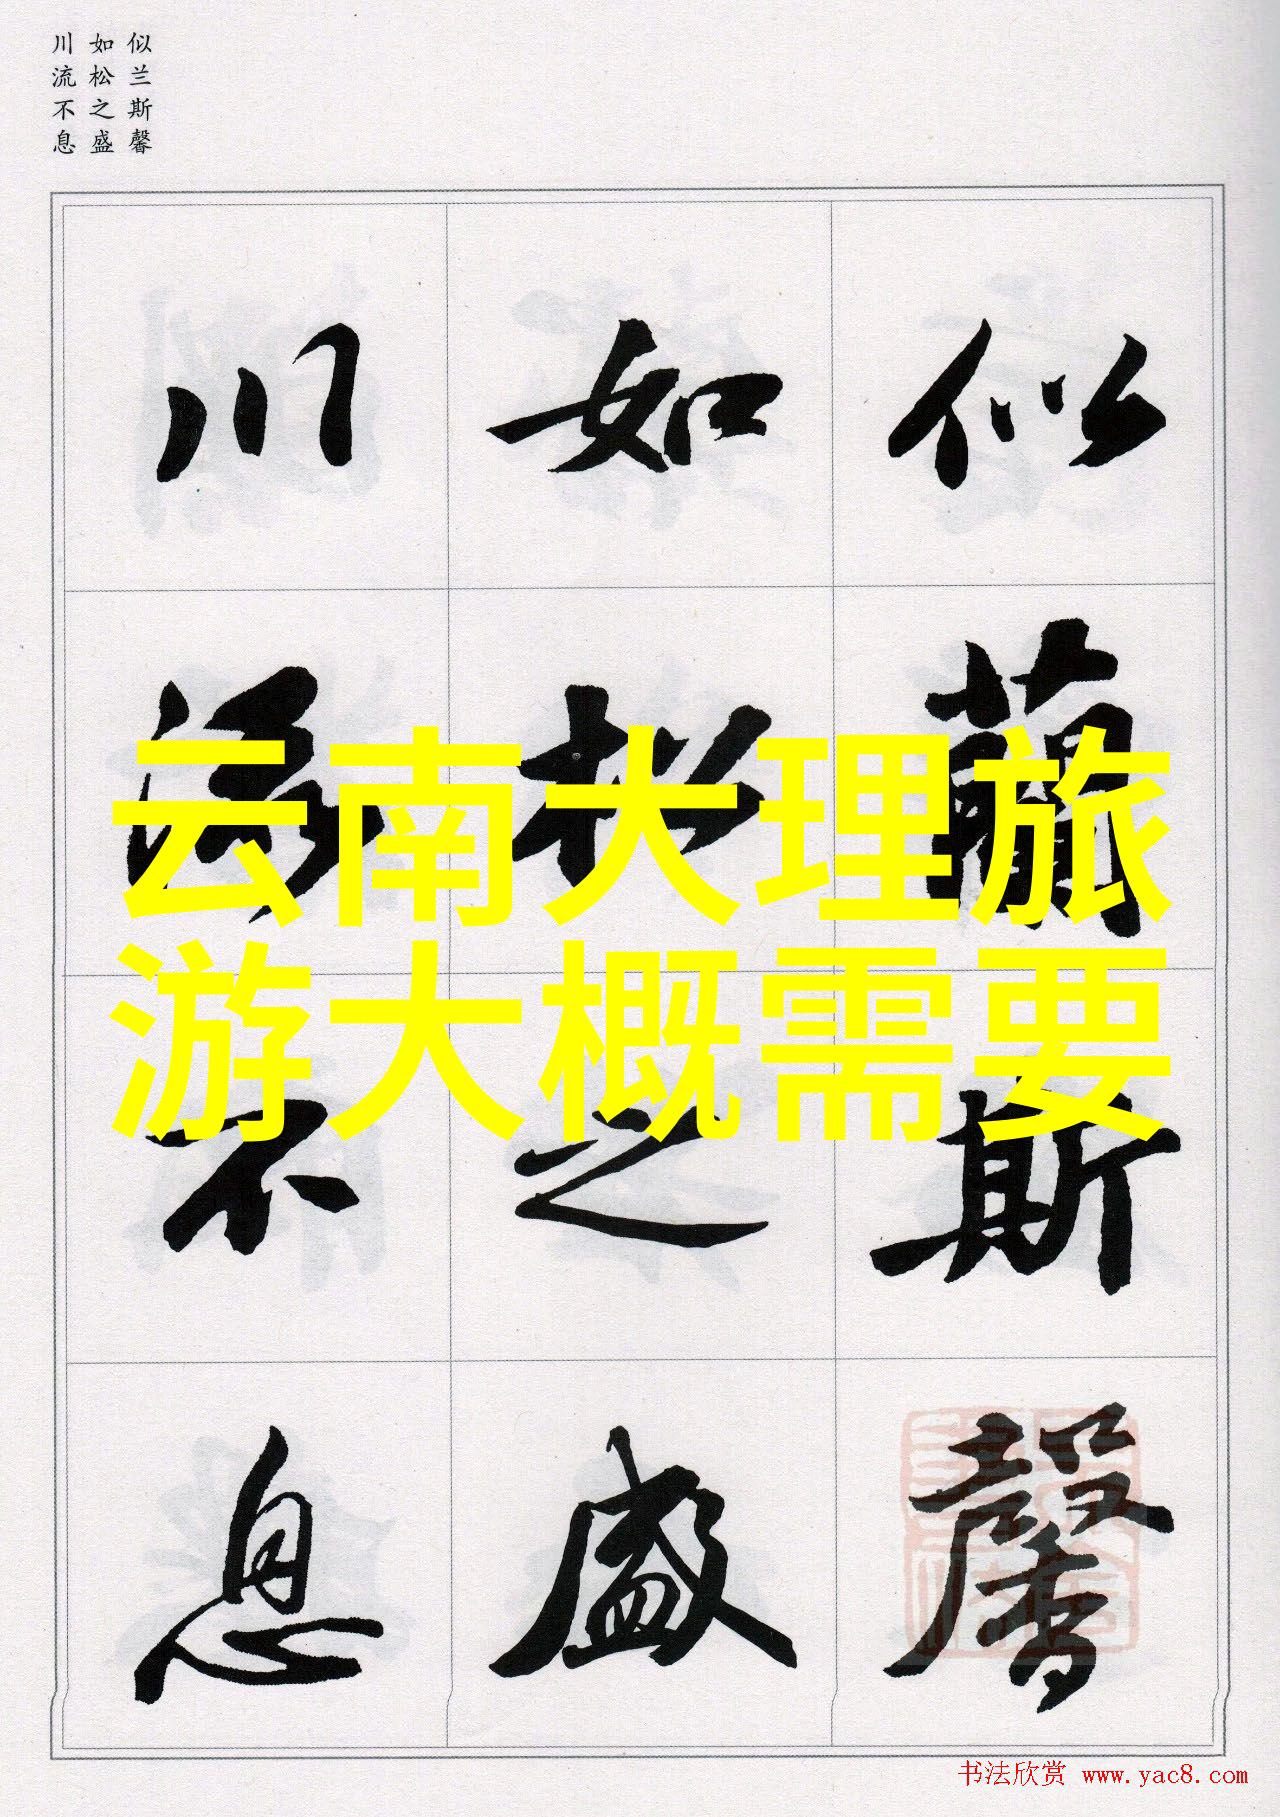 似兰斯馨
如松之盛
川流不息
似蘭斯馨
如松之盛
川流不息
云南大理旅
游大概需要
书法欣赏 www.yac8.com